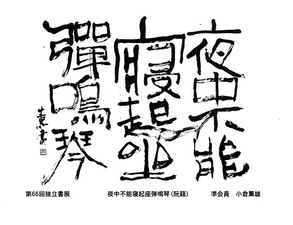 夜中不能
寢起坐
彈鳴琴
第66回独立書展 夜中不能寝起座弾鳴琴(阮籍) 準会員 小倉薫雄